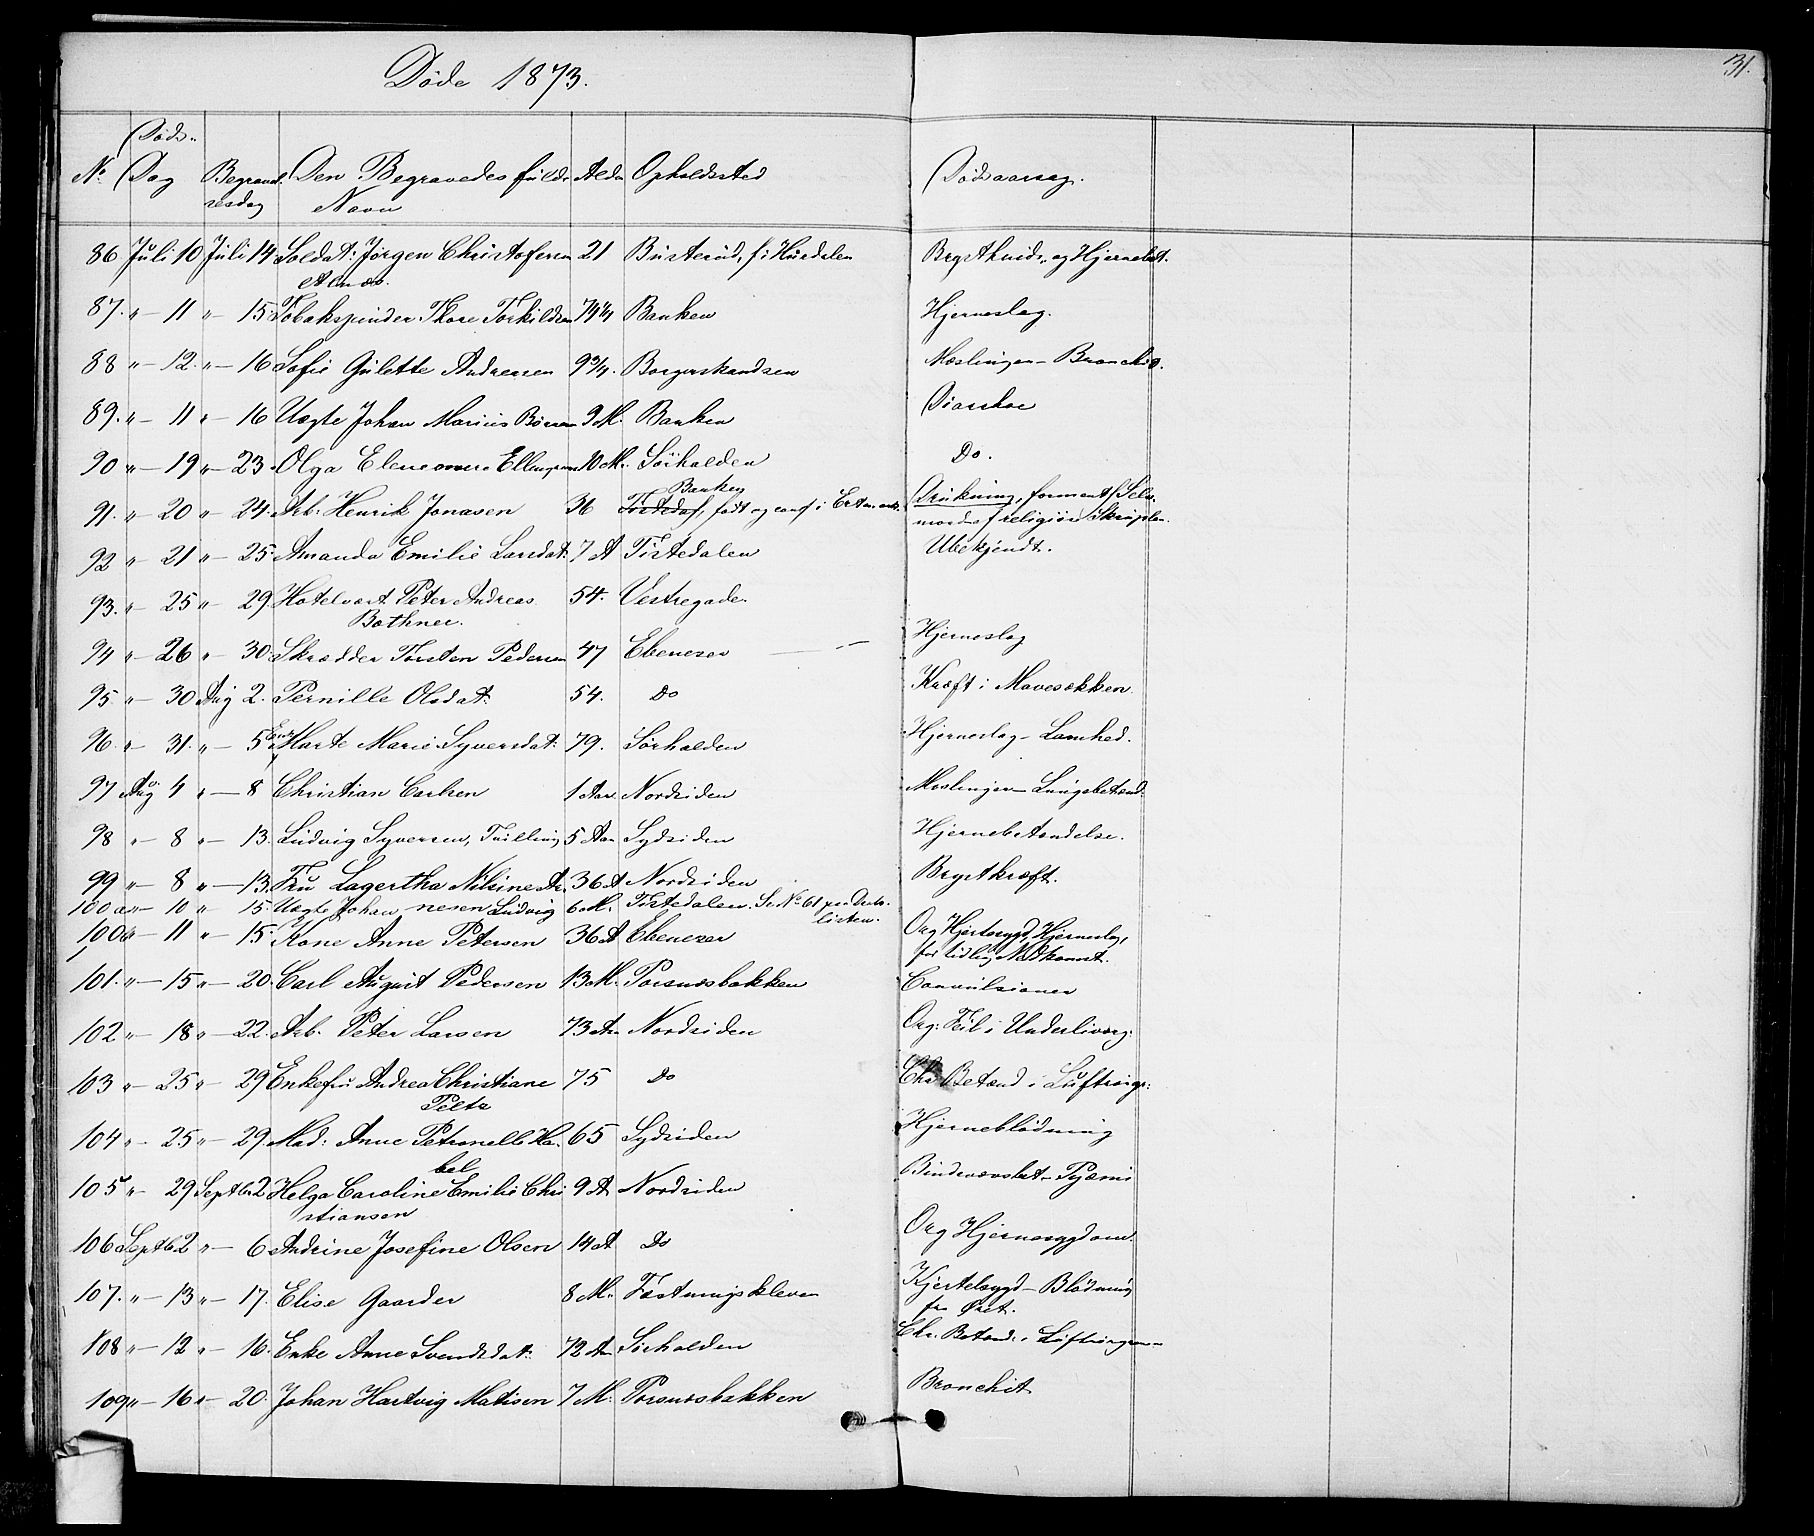 Døde 1873.
31.
No Døds- Dag Begravelsesdag Den Begravedes fulde Navn Alder Opholdssted Dødsaarsag.
86 Juli 10 Juli 14 Soldat: Jørgen Christofersen 21 Busterud, f: Hurdalen Brystbetænd. og Hjernebet.
87. " – 11 " – 15 Tobakspinder Thore Torkildsen 74 1/4 Banken Hjerneslag.
88 " – 12. " – 16 Sofie Gulette Andersen 9 3/4. Borgerskandsen Mæslinger – Bronchit.
89. " – 11 " – 16 Uægte Johan Marius 9 M. Banken Diarrhoe
90 " – 19 " – 23. Olga Eleneonore Ellingsen 10 M. Sörhalden Do.
Banken
91. " – 20 " – 24. Arb. Henrik Jonasen 36 Tistedal, født og conf i Drukning, forment Selv-
mord af religiøse Skrupler.
92 " – 21 " – 25 Amanda Emilie Larsdat: 7 A Tistedalen Ubekjendt.
93. " – 25 " – 29. Hotelvært Peter Andreas 54. Vestregade.
Bothner.
94 " – 26 " – 30. Skrædder Torsten Pedersen 47 Ebeneser Hjerneslag
95. " – 30 Aug 2. Pernille Olsdat: 54. Do Kræft i Mavesækken.
96. " – 31. " – 5 Enke Marte Marie Syversdat: 79. Sørhalden Hjerneslag – Lamhed.
97 Aug 4 " – 8 Christian Carlsen 1 Aar Nordsiden Mæslinger – Lungebetænd:
98 " – 8 " – 13. Ludvig Syversen, Tvilling 5 Aar Sydsiden Hjernebetændelse.
99 " – 8 " – 13. Fru Lagertha Nilsine 36 A Nordsiden Brystkræft.
100 a " – 10 " 15. Uægte Johan Ludvig 6 M. Tistedalen. Se No 61 paa
listen.
100 b – 11 " – 15. Kone Anne Petersen 36 A Ebeneser Org Hjertesygd, Hjerneslag,
for tidlig Nedkomst.
101. " – 15 " – 20. Carl August Pedersen 13 M. Porsnæsbakken Convulsioner
102 " – 18 " – 22. Arb. Peter Larsen 73 Aar Nordsiden Org: Feil i Underlivsorg:
103 " – 25 " – 29 Enkefru Andrea Christiane 75 Do Chr Betænd i Luftrørsgr:
Peltz
104 " – 25 " – 29. Mad: Anne Petronelle Ha- 65 Sydsiden Hjerneblødning
bel
105 " – 29 Septbr 2 Helga Caroline Emilie Chri 9 A Nordsiden Bindevævsbet – Pyæmi
stiansen
106 Septb. 2 " – 6 Andrine Josefine Olsen 14 A Do Org Hjernesygdom.
107. " – 13 " – 17. Elise Gaarder 8 M. Fæstningskleven Kjertelsygd – Blødning
fra Øret.
108 " – 12 " – 16. Enke Anne Svendsdat: 72 Aar Sörhalden Chr. Betænd: i Luftrørsgren-
109 " – 16 " – 20. Johan Hartvig Matisen 7 M. Porsnæsbakken Bronchit